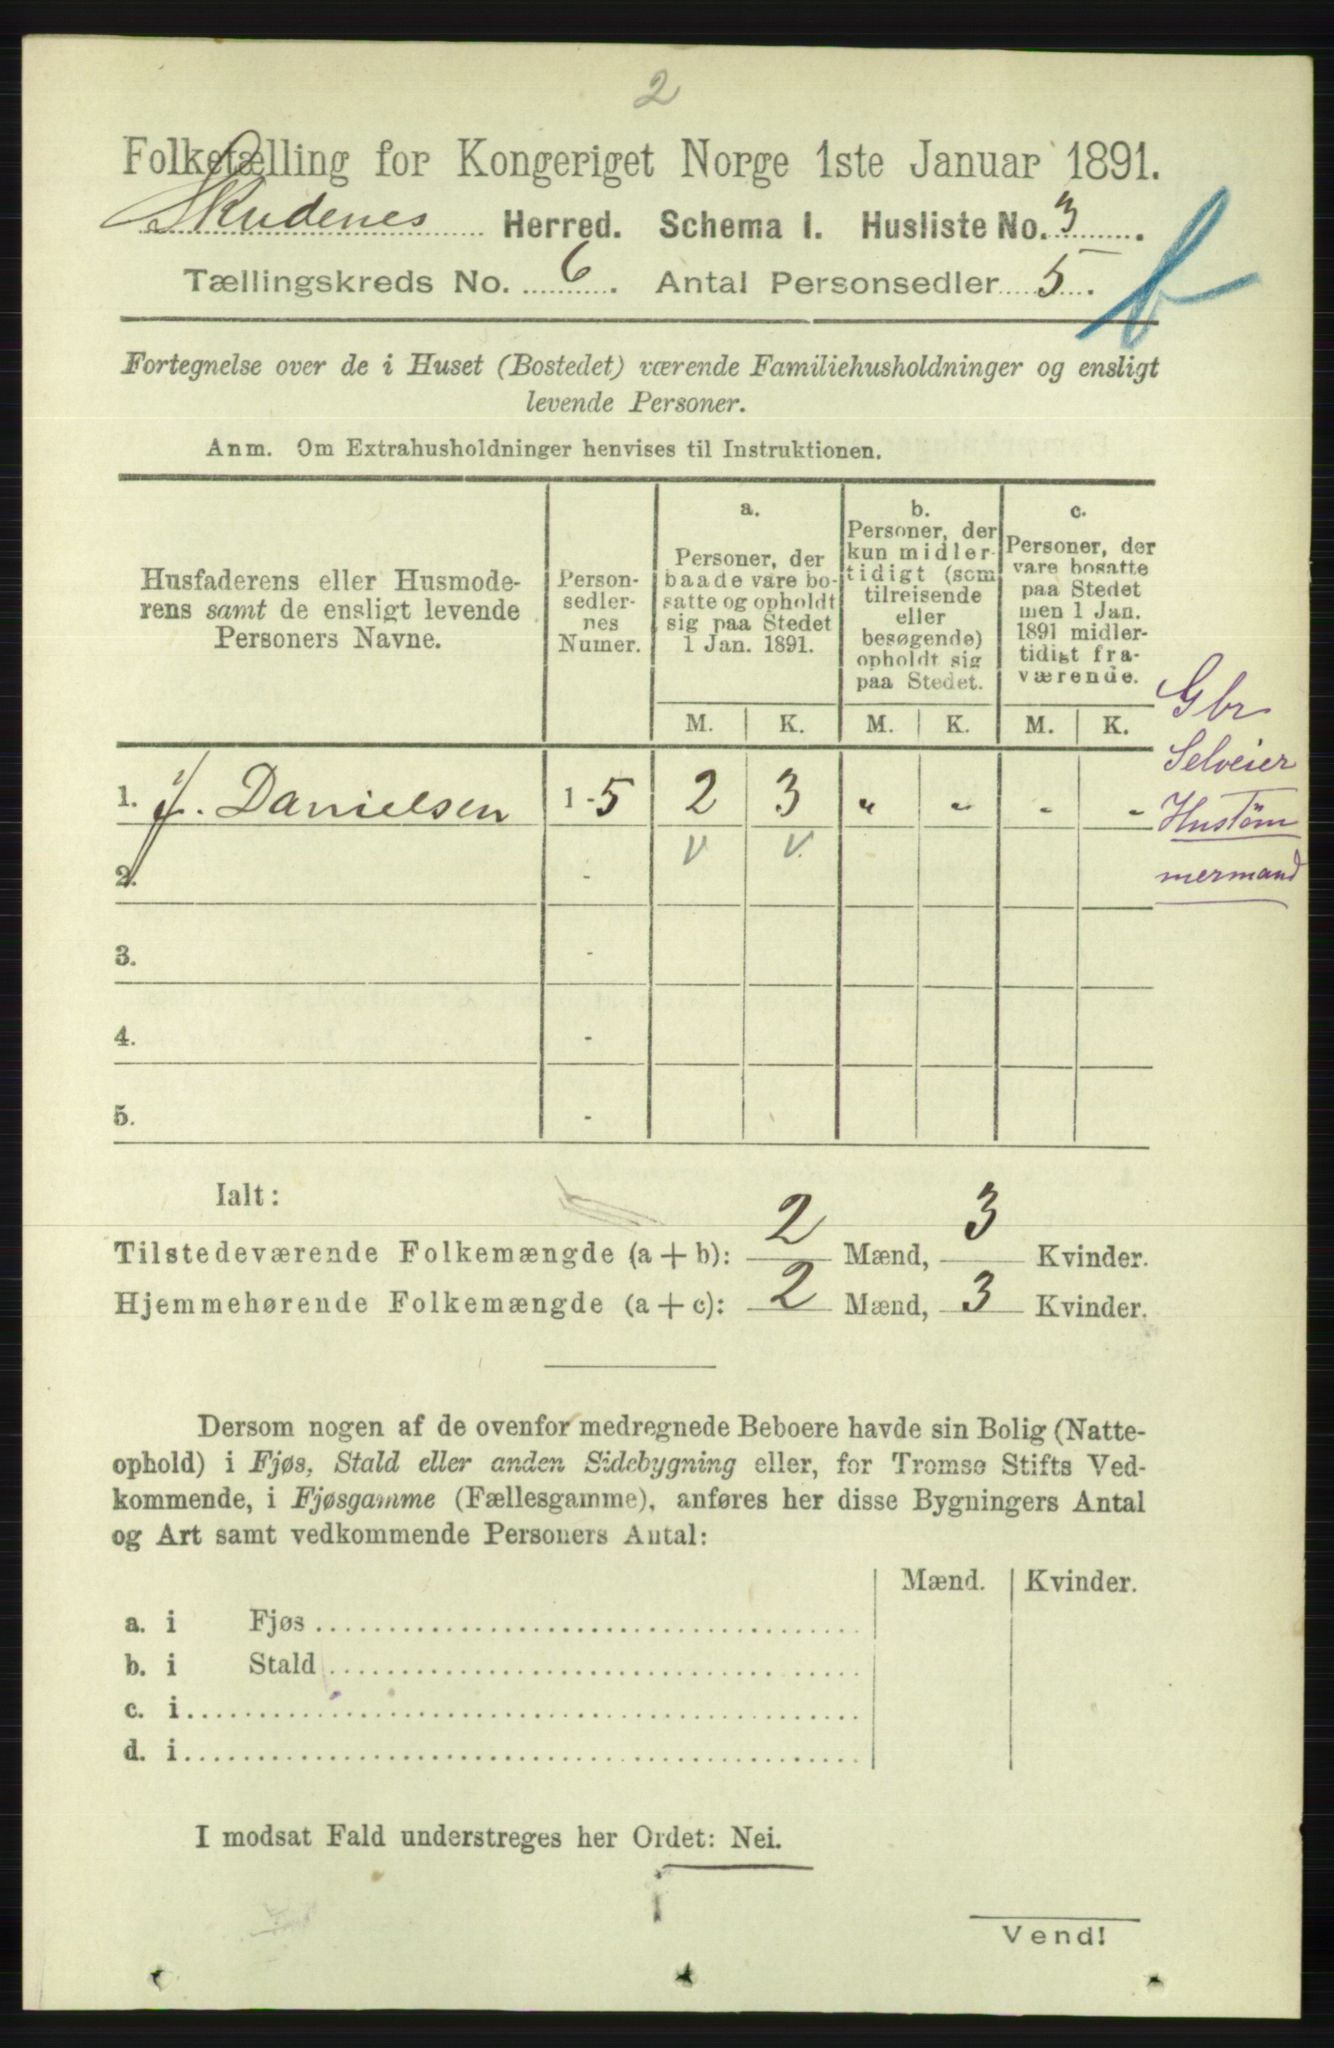 2
Folketælling for Kongeriget Norge 1ste Januar 1891.
Skudenes Herred. Schema I. Husliste No. 3.
Tællingskreds No. 6. Antal Personsedler 5.
Fortegnelse over de i Huset (Bostedet) værende Familiehusholdninger og ensligt
levende Personer.
Anm. Om Extrahusholdninger henvises til Instruktionen.
Husfaderens eller Husmode-
rens samt de ensligt levende
Personers Navne.
Person-
sedler-
nes
Numer.
a.
Personer, der
baade vare bo-
satte og opholdt
sig paa Stedet
1 Jan. 1891.
b.
Personer, der
kun midler-
tidigt (som
tilreisende
eller
besøgende)
opholdt sig
paa Stedet.
c.
Personer, der
vare bosatte
paa Stedet
men 1 Jan.
1891 midler-
tidigt fra-
værende.
M. K. M. K. M. K.
Gbr
Selveier
Hustøm
mermand
1. J. Danielsen 1-5 2 3 " " - -
2. - v v
3. -
4. -
5. -
Ialt:
Tilstedeværende Folkemængde (a + b): 2 Mænd, 3 Kvinder.
Hjemmehørende Folkemængde (a + c): 2 Mænd, 3 Kvinder.
Dersom nogen af de ovenfor medregnede Beboere havde sin Bolig (Natte-
ophold) i Fjøs, Stald eller anden Sidebygning eller, for Tromsø Stifts Ved-
kommende, i Fjøsgamme (Fællesgamme), anføres her disse Bygningers Antal
og Art samt vedkommende Personers Antal:
Mænd. Kvinder.
a. i Fjøs
b. i Stald
c. i
d. i
I modsat Fald understreges her Ordet: Nei.
Vend!